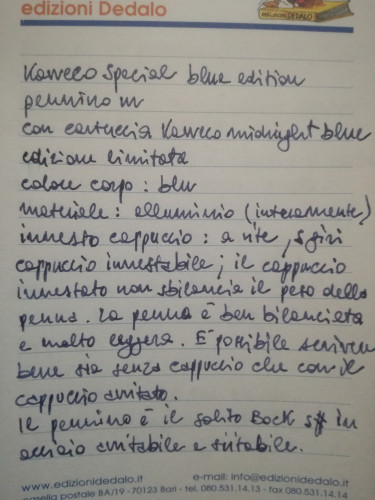 edizioni Dedalo
EDIZIONI DEDALO
Kaweco Special blue edition
pennino m
con cartuccia Kaweco midnight blue
edizione limitata
colore corpo: blu
materiale: alluminio (interamente)
innesto cappuccio: a vite, 5 giri
cappuccio innestabile; il cappuccio
innestato non sbilancia il peso della
penna. La penna è ben bilanciata
e molto leggera. È possibile scrivere
bene sia senza cappuccio che con il
cappuccio avvitato.
Il pennino è il solito Bock in
acciaio avvitabile e svitabile.
www.edizionidedalo.it
e-mail: info@edizionidedalo.it
casella postale BA/19 - 70123 Bari - tel. 080.531.14.13 - fax 080.531.14.14